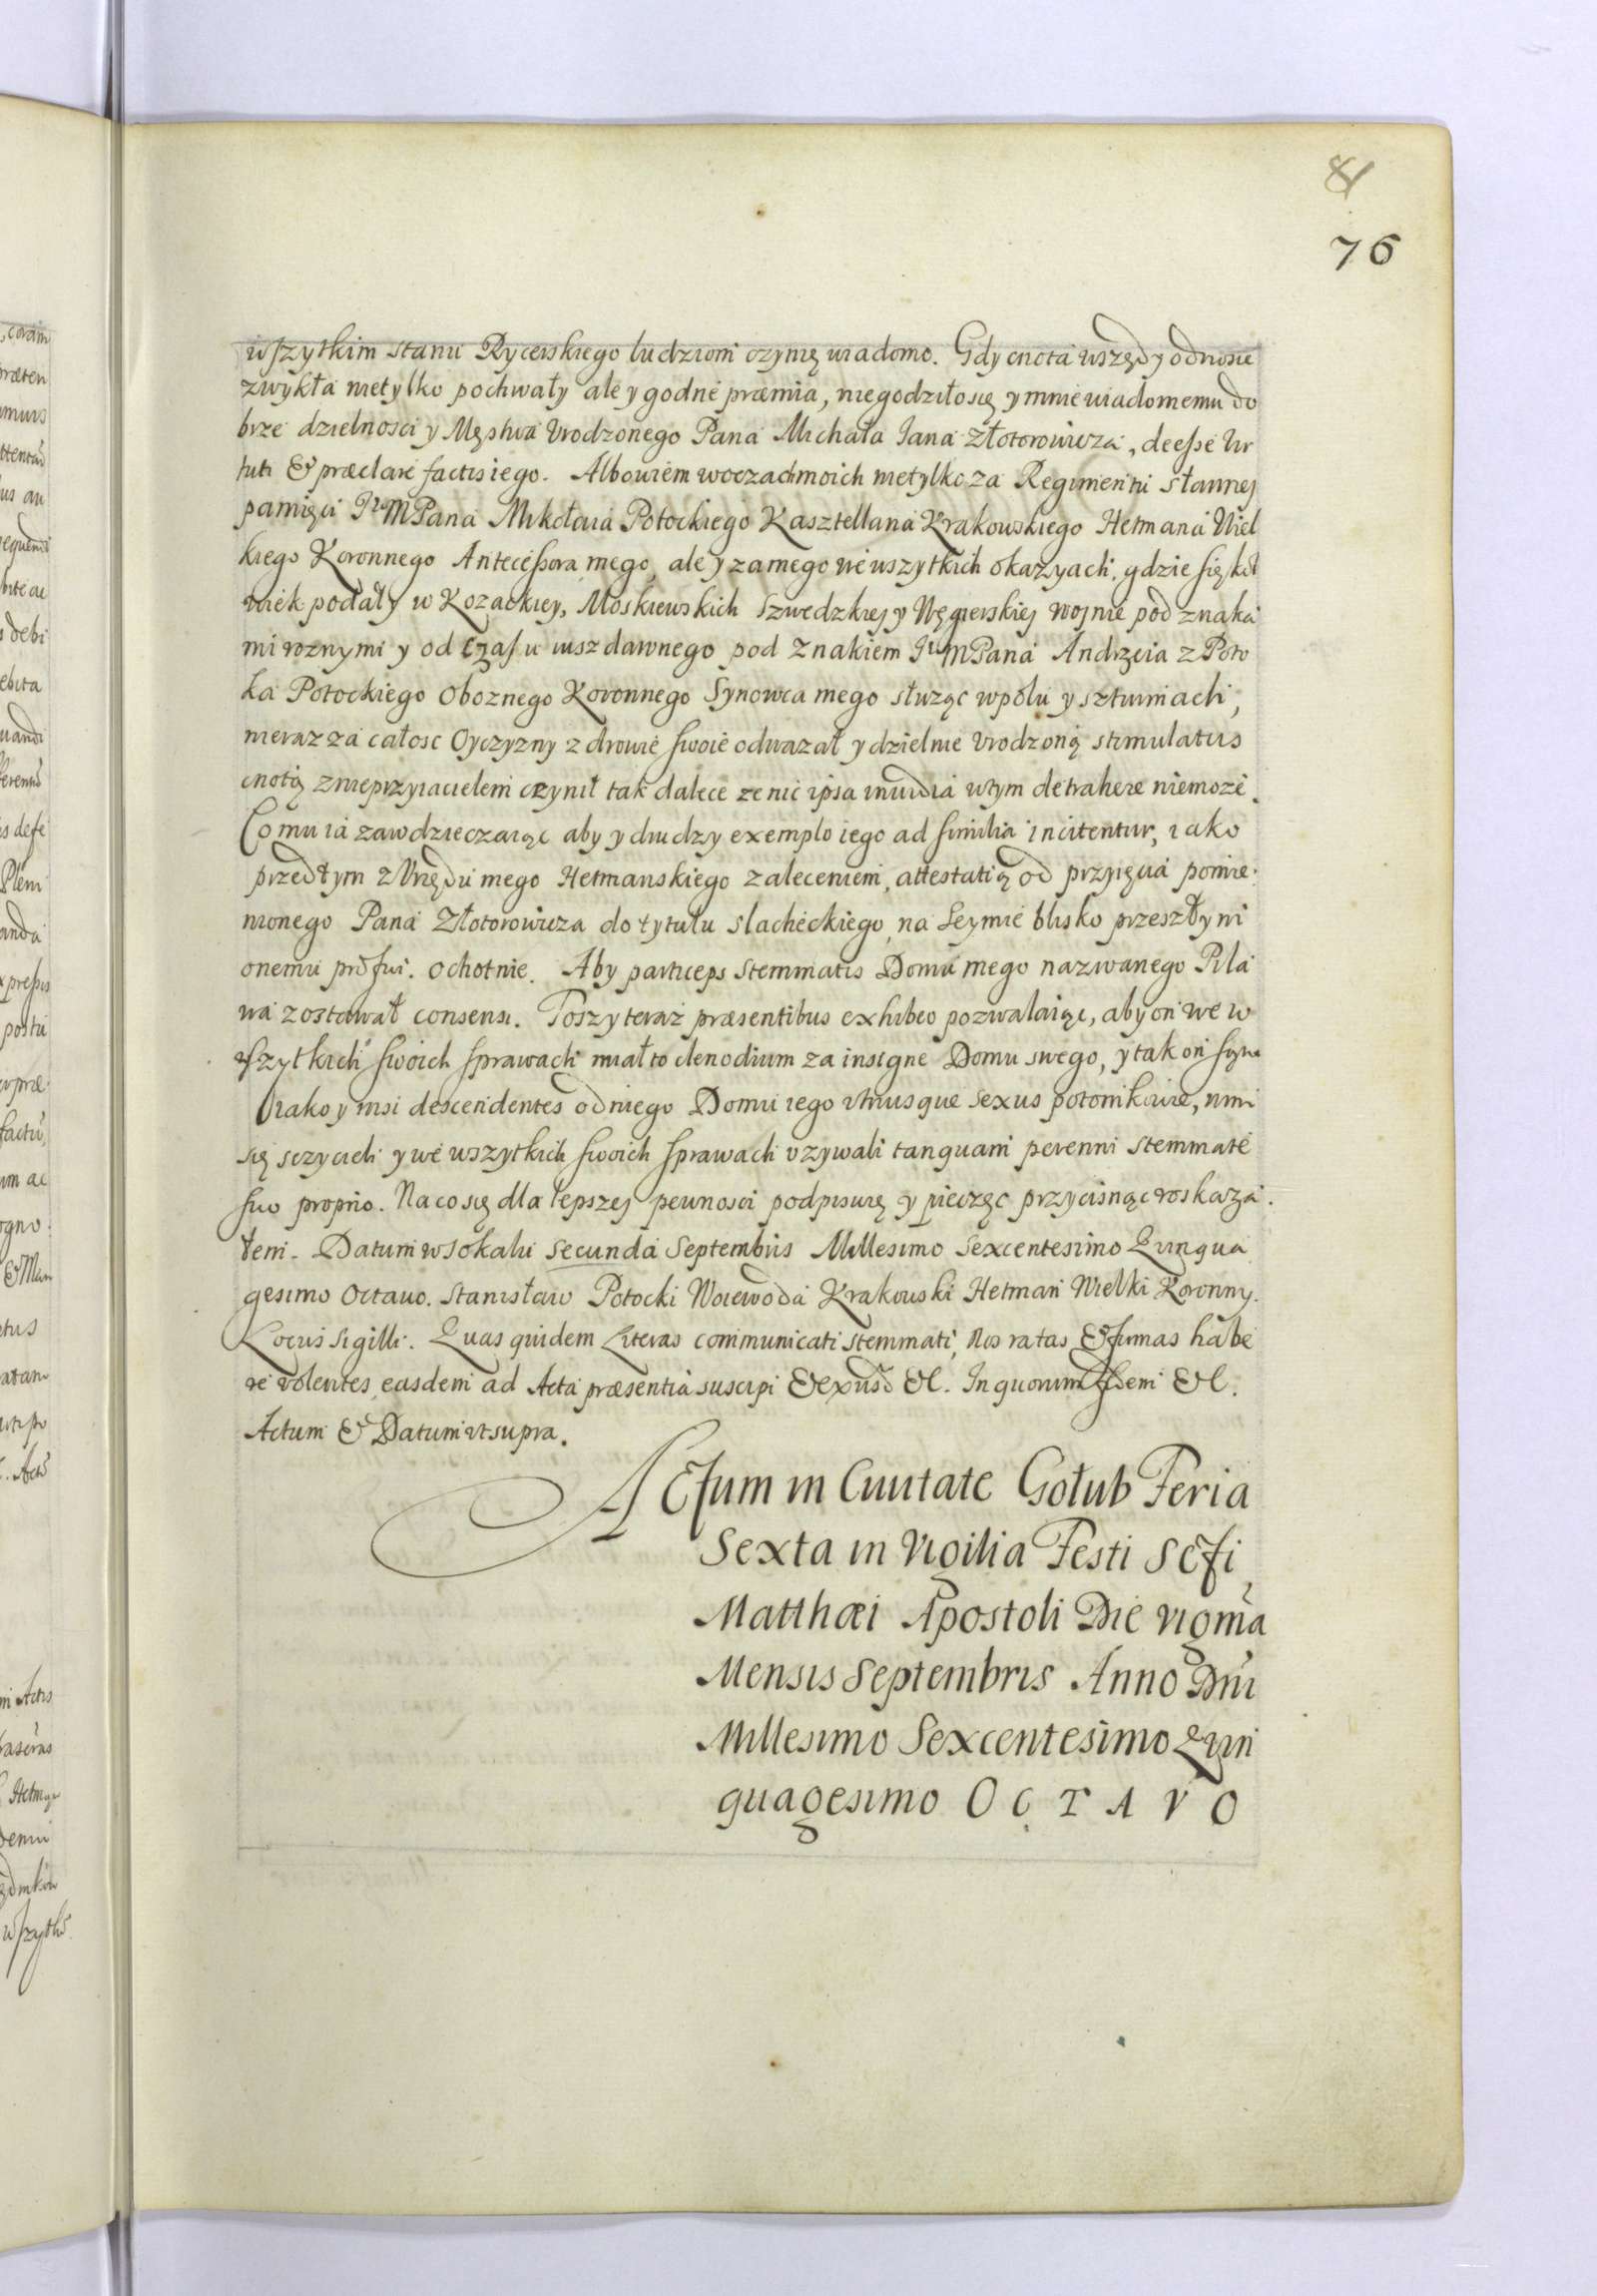 81
76
wszytkim stanu Rycerskiego ludziom czynię wiadomo. Gdy cnota wszędy odnosic
zwykła nietylko pochwały ale y godne præmia, niegodziło się y mnie wiadomemu do
brze dzielnosci y Męstwa Vrodzonego Pana Michała Jana Złotorowicza, deesse vir
tuti & præclare factis iego. Albowiem woczach moich nietylko za Regimentu sławney
pamięci JeMPana Mikołaia Potockiego Kasztellana Krakowskiego Hetmana Wiel
kiego Koronnego Antecessora mego, ale y za mego we wszytkich okazyach, gdzie się kol
wiek podały w Kozackiey, Moskiewskich Szwedzkiej y Węgierskiej wojnie pod znaka
mi roznymi y od czasu iusz dawnego pod Znakiem JeMPana Andrzeia z Poto
ka Potockiego Oboznego Koronnego Synowca mego służąc w polu y szturmach,
nieraz za całosc Oyczyzny zdrowie swoie odwazał y dzielnie Vrodzoną stimulatus
cnotą z nieprzyiacielem czynił tak dalece ze nic ipsa inuidia w tym detrahere niemoze.
Co mu ia zawdzieczaiąc aby y drudzy exemplo iego ad similia incitentur, iako
przedtym z Vrzędu mego Hetmanskiego zaleceniem, attestatią od przyięcia pomie:
nionego Pana Złotorowicza do tytułu slacheckiego, na Seymie blisko przeszłym
onemu profui. ochotnie. Aby particeps stemmatis Domu mego nazwanego Pila
wa zostawał consensi. Toszy teraz præsentibus exhibeo pozwalaiąc, aby on we w
szytkich swoich sprawach miał to clenodium za insigne Domu swego, y tak on sam
iako y insi descendentes od niego Domu iego vtriusque sexus potomkowie, nim
się sczycieli y we wszytkich swoich sprawach vzywali tanquam perenni stemmate
suo proprio. Na co się dla lepszej pewnosci podpisuię y pieczęc przycisnąc roskaza.
łem. Datum w Sokalu Secunda Septembris Millesimo Sexcentesimo Quinqua
gesimo Octauo. Stanisław Potocki Woiewoda Krakowski Hetman Wielki Koronny.
Locus Sigilli. Quas quidem Literas communicati stemmati, Nos ratas & firmas habe
re volentes, easdem ad Acta præsentia suscipi & exinde &c. In quorum fidem &c.
Actum & Datum vt supra.
ACtum in Ciuitate Gołub Feria
Sexta in Vigilia Festi Scti
Matthæi Apostoli Die vigma
Mensis Septembris Anno Dni
Millesimo Sexcentesimo Quin
quagesimo OCTAVO